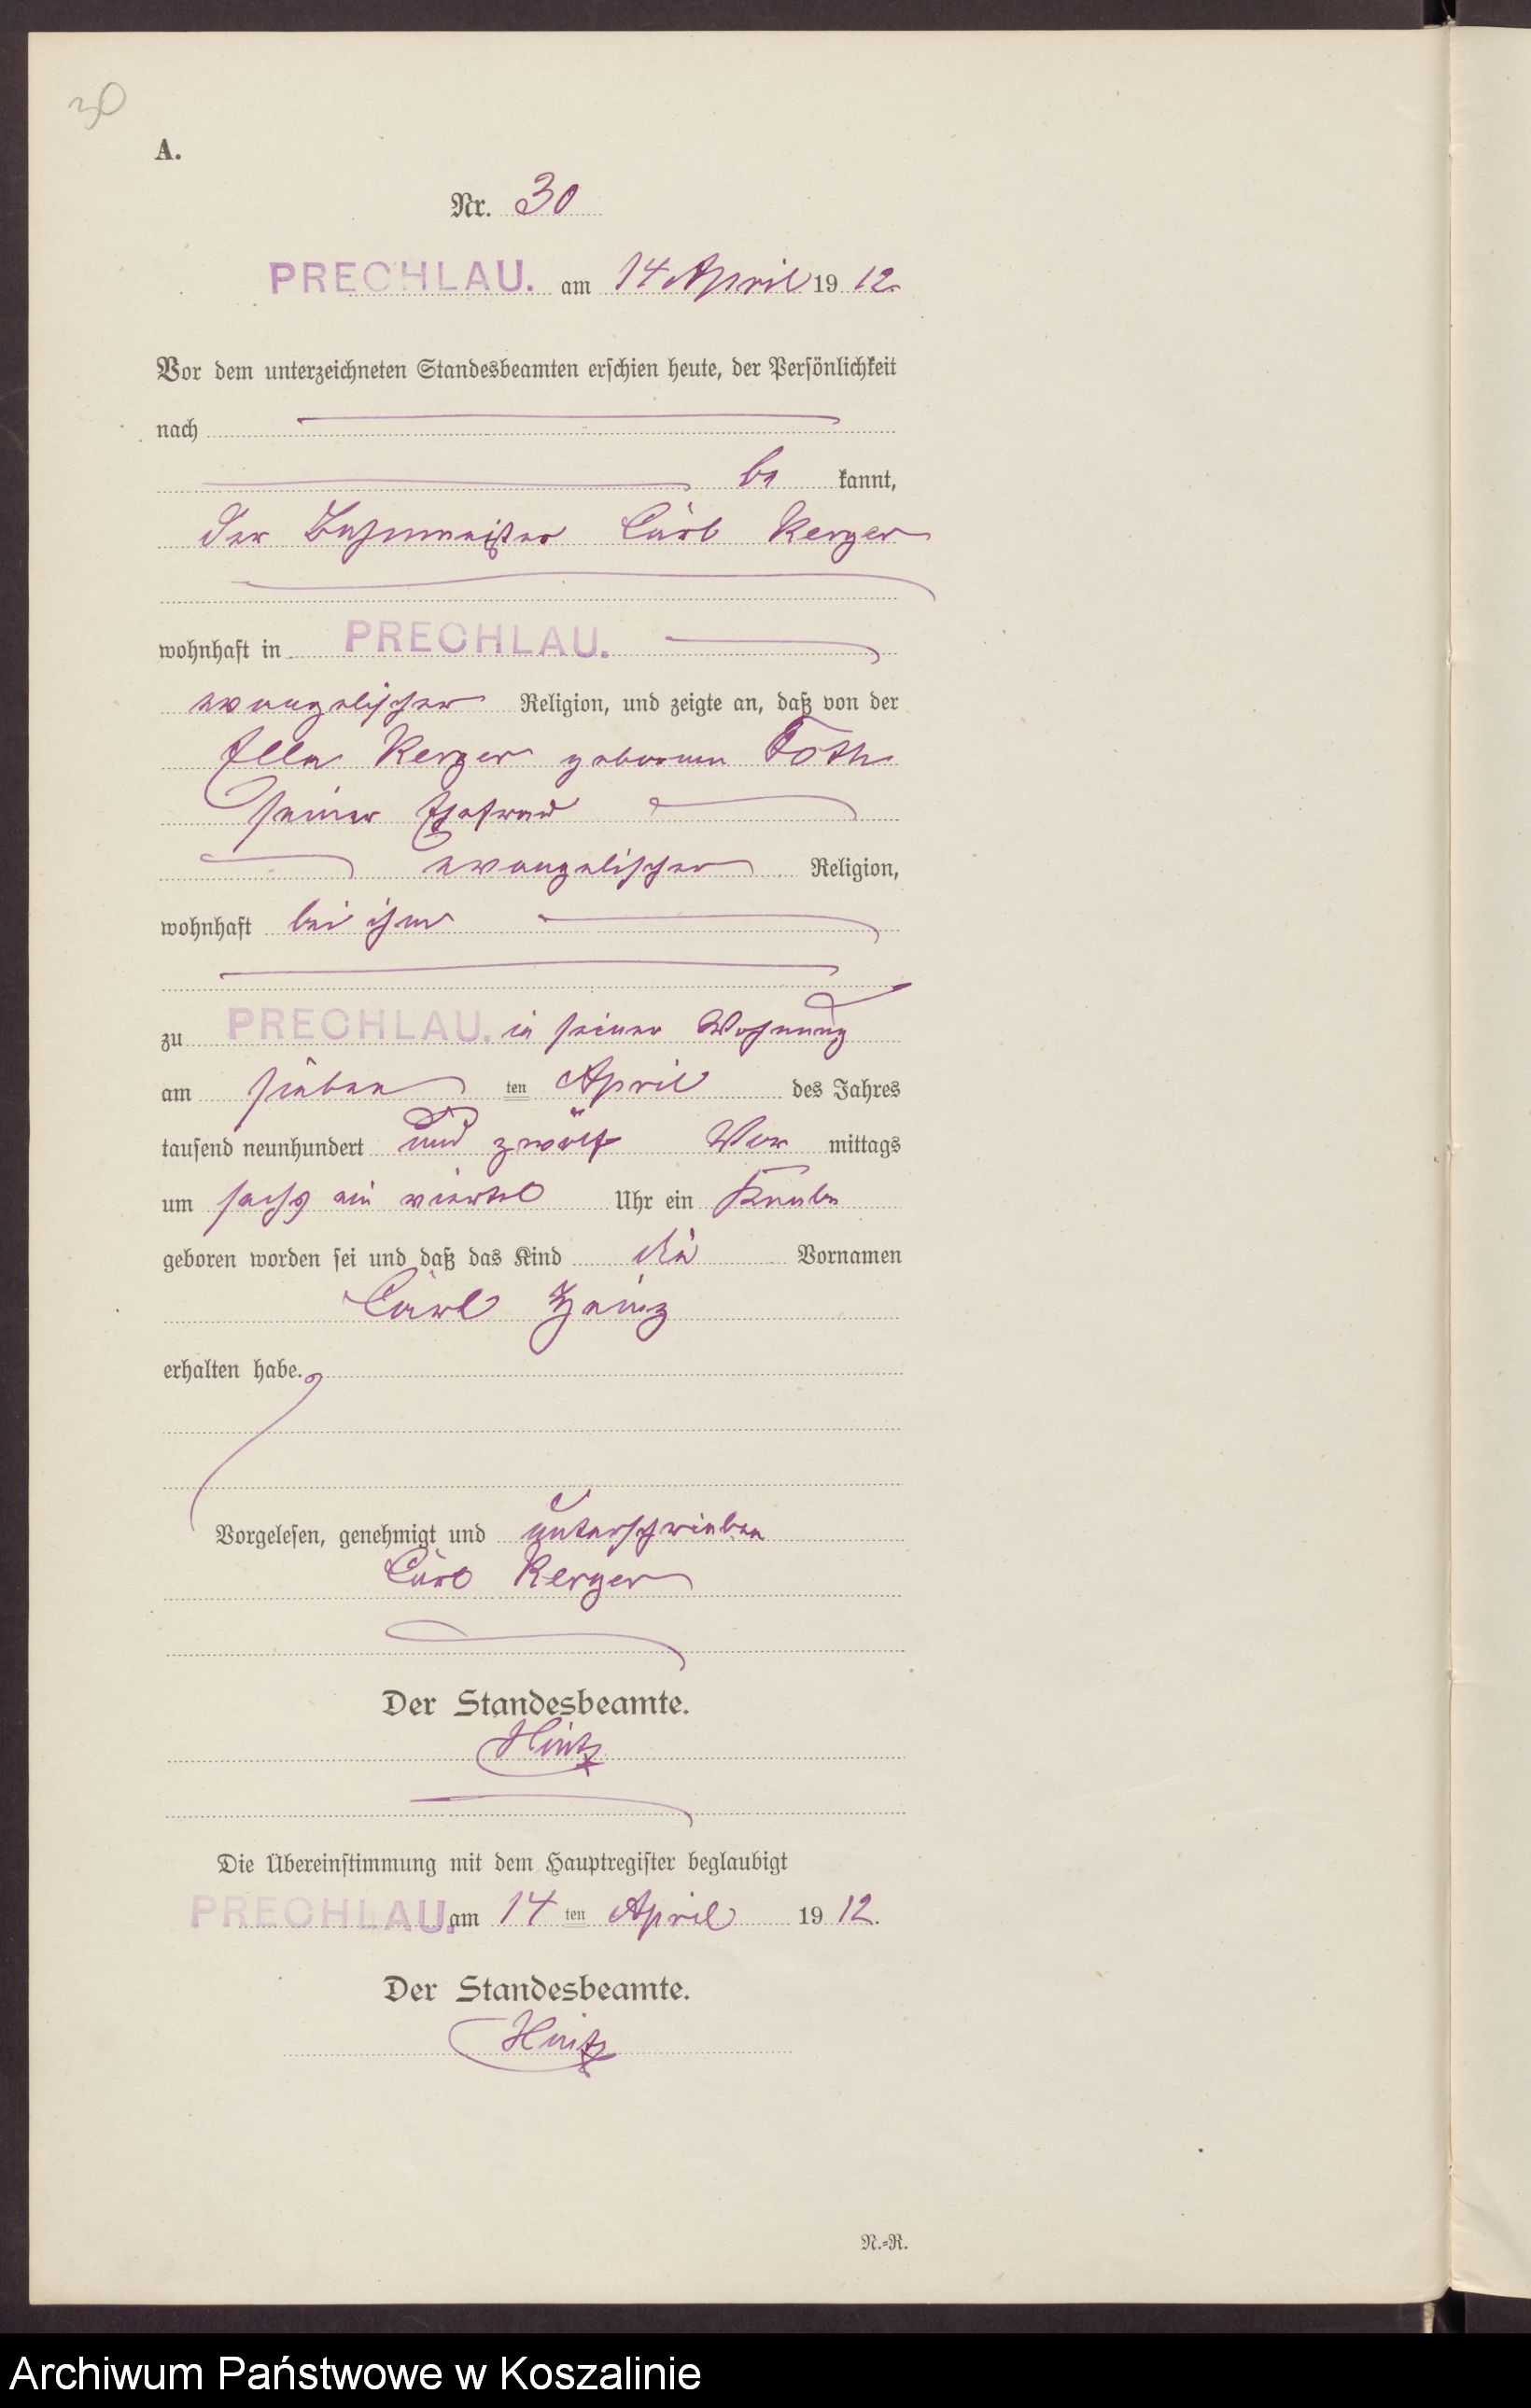 30
A.
Nr. 30
PRECHLAU. am 14 April 1912.
Vor dem unterzeichneten Standesbeamten erschien heute, der Persönlichkeit
nach
be kannt,
der Bahnmeister Carl Kerger
wohnhaft in PRECHLAU.
evangelischer Religion, und zeigte an, daß von der
Ella Kerger geborenen Toth
seiner Ehefrau
evangelischer Religion,
wohnhaft bei ihm
zu PRECHLAU. in seiner Wohnung
am sieben ten April des Jahres
tausend neunhundert und zwölf Vor mittags
um sechs ein viertel Uhr ein Knabe
geboren worden sei und daß das Kind die Vornamen
Carl Heinz
erhalten habe.
Vorgelesen, genehmigt und unterschrieben
Carl Kerger
Der Standesbeamte.
Hintz
Die Übereinstimmung mit dem Hauptregister beglaubigt
PRECHLAU. am 14 ten April 1912.
Der Standesbeamte.
Hintz
N.=R.
Archiwum Państwowe w Koszalinie